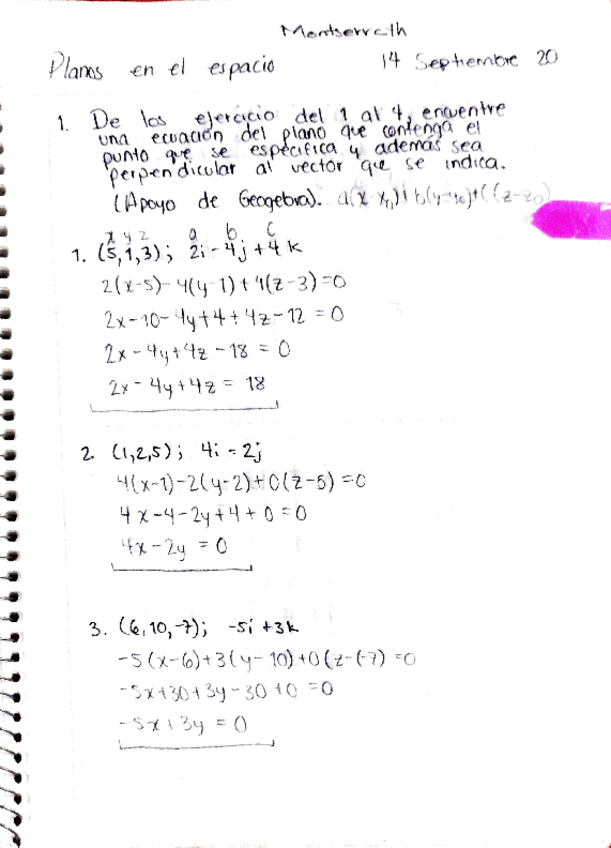 Montserrath
Planos en el espacio 14 Septiembre 20
1. De los ejercicio del 1 al 4, encuentre
una ecuación del plano que contenga el
punto que se especifica y además sea
perpendicular al vector que se indica.
(Apoyo de Geogebra). a(x-x₀)+b(y-y₀)+c(z-z₀)
x y z a b c
1. (5,1,3); 2i-4j+4k
2(x-5)-4(y-1)+4(z-3)=0
2x-10-4y+4+4z-12=0
2x-4y+4z-18=0
2x-4y+4z=18
2. (1,2,5); 4i-2j
4(x-1)-2(y-2)+0(z-5)=0
4x-4-2y+4+0=0
4x-2y=0
3. (6,10,-7); -5i+3k
-5(x-6)+3(y-10)+0(z-(-7)=0
-5x+30+3y-30+0=0
-5x+3y=0